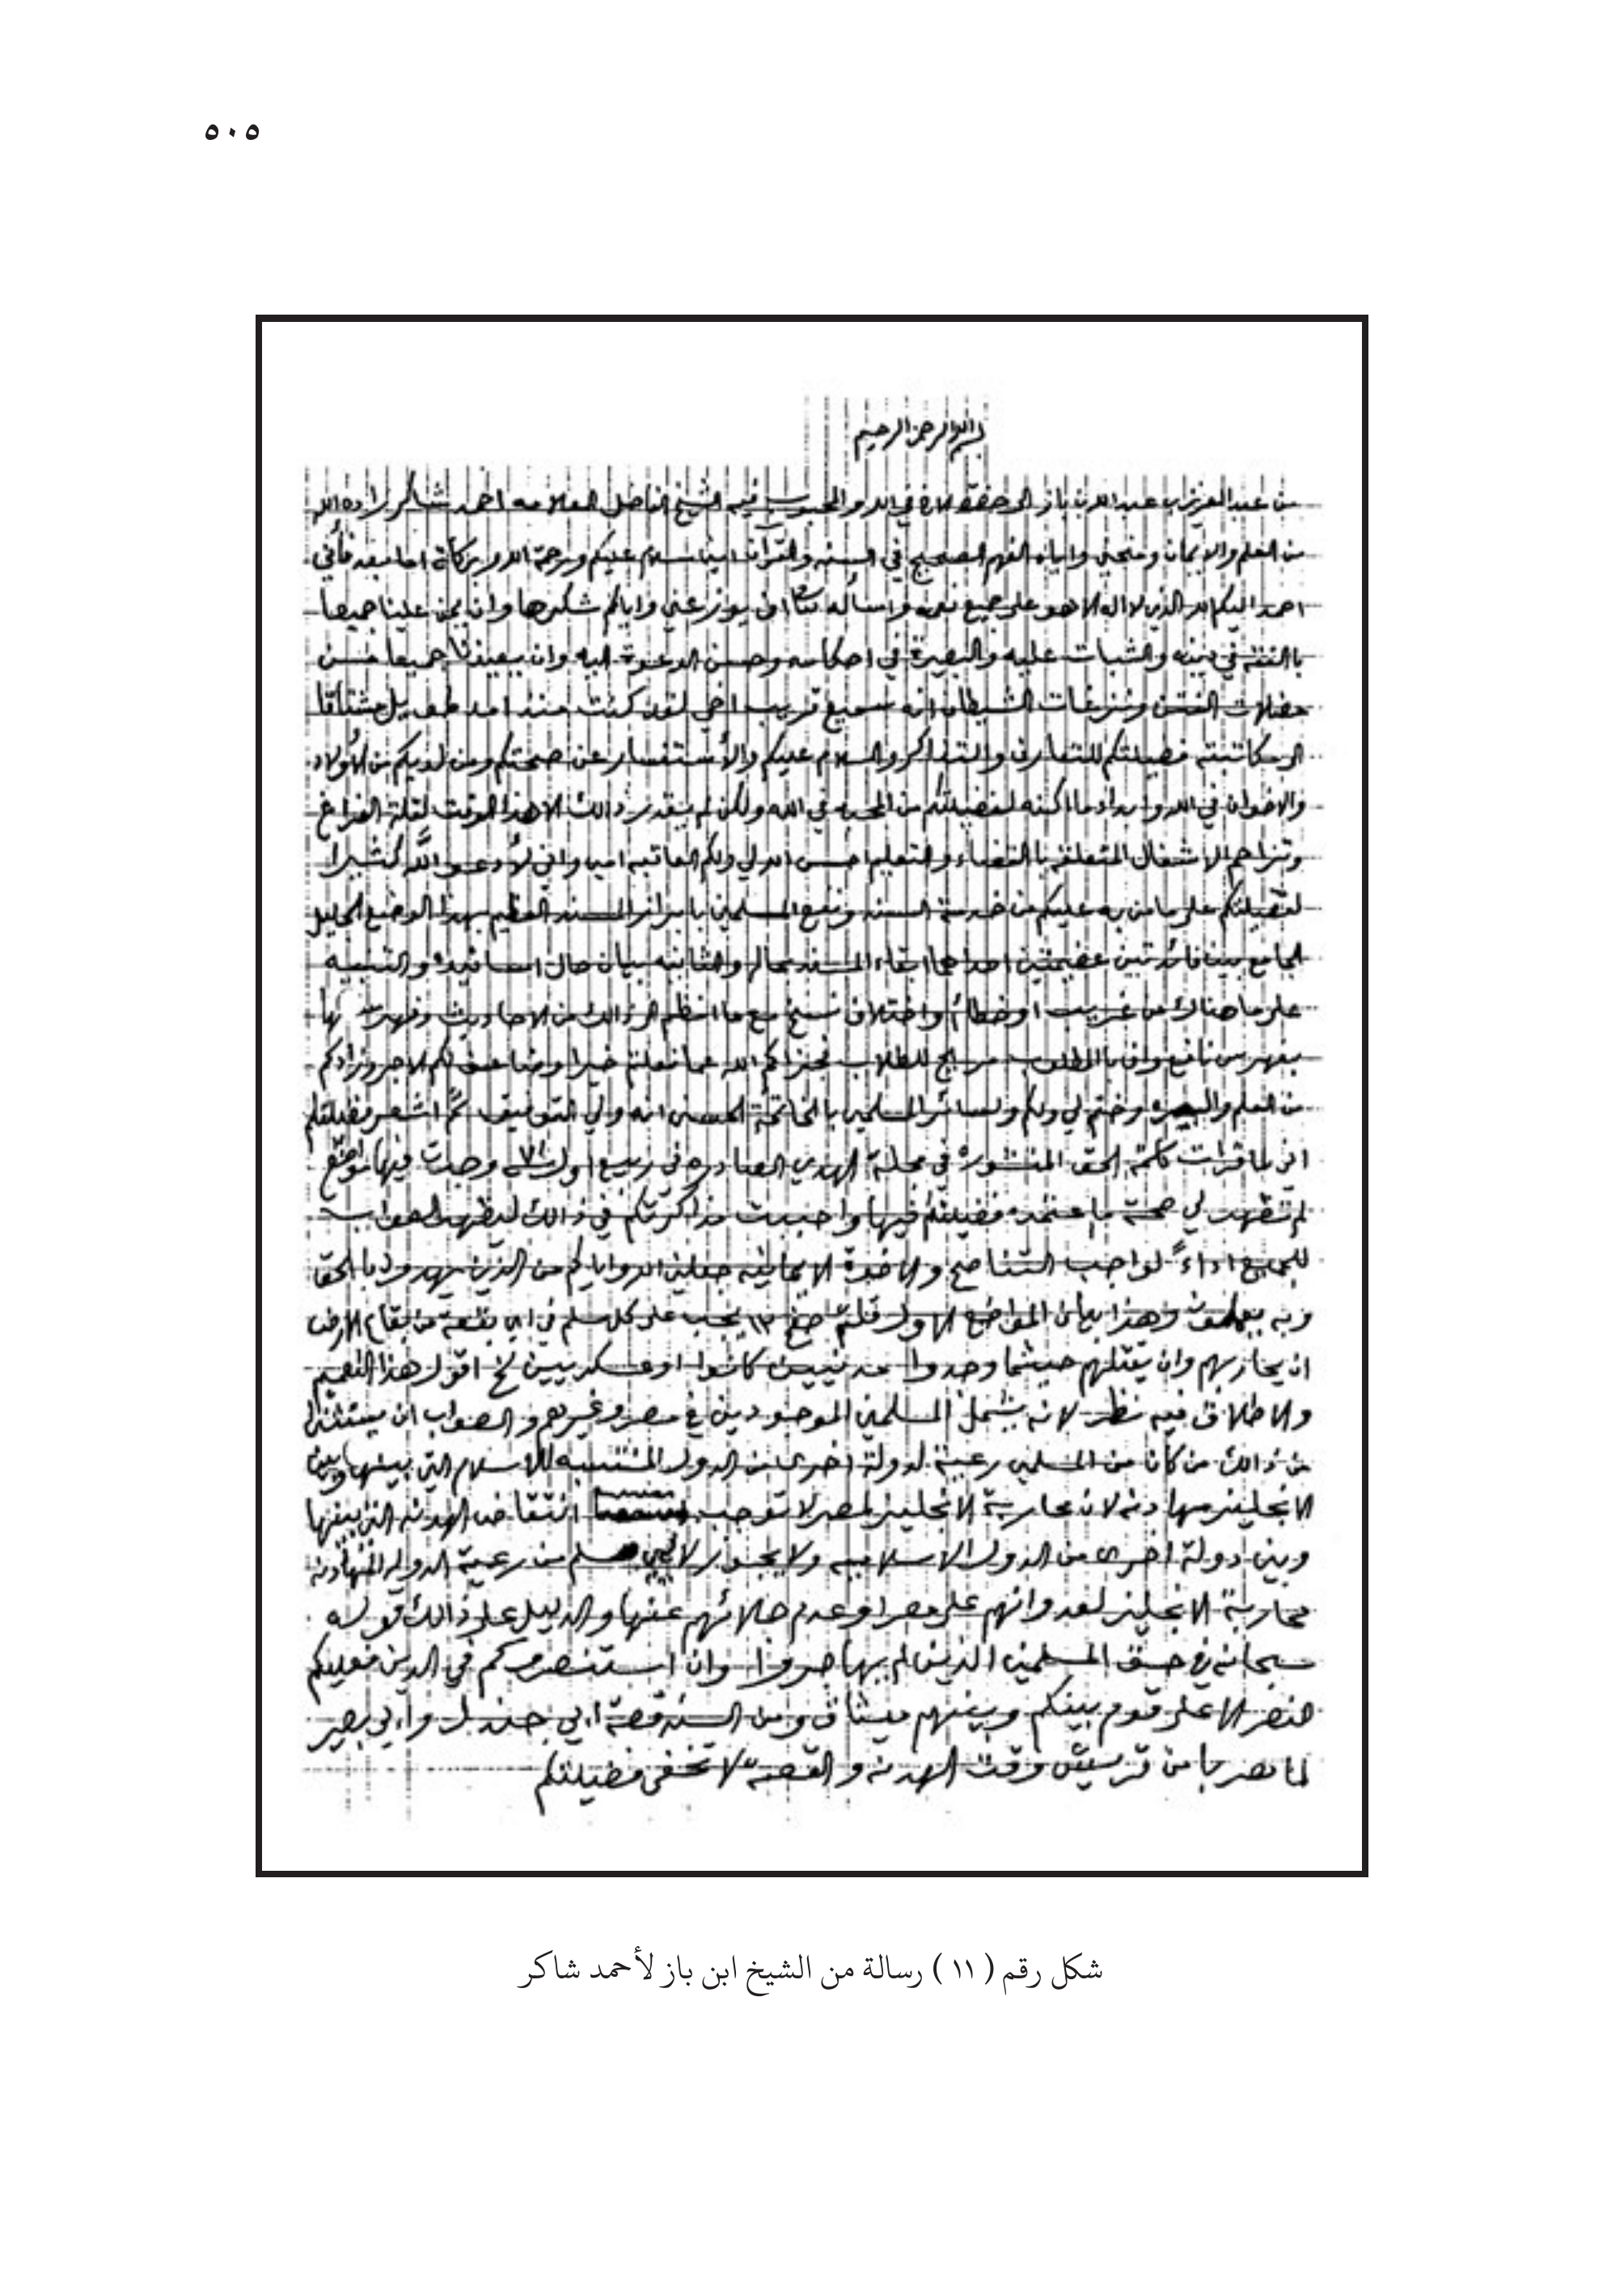 ٥٠٥
بسم الله الرحمن الرحيم
من عبد العزيز بن عبد الله بن باز الى حضرة الاخ في الله والمحبوب فيه الشيخ الفاضل العلامه احمد شاكر زاده الله
من العلم والايمان ومنحني واياه الفهم الصحيح في السنه والقرآن امين سلام عليكم ورحمة الله وبركاته اما بعد فأني
احمد اليكم الله الذي لا اله الا هو على جميع نعمه واسأله تعالى ان يوزعني واياكم شكرها وان يمن علينا جميعا
بالفقه في دينه والثبات عليه والبصيرة في احكامه وحسن الدعوة اليه وان يعيذنا جميعا من
مضلات الفتن ونزغات الشيطان انه سميع قريب اخي لقد كنت منذ امد طويل مشتاقا
الى مكاتبة فضيلتكم للتعارف والتذاكر والسلام عليكم والأستفسار عن صحتكم ومن لديكم من الأولاد
والاخوان في الله وابداء ما اكنه لفضيلتكم من المحبه في الله ولكن لم يقدر ذالك الا هذا الوقت لقلة الفراغ
وتزاحم الاشغال المتعلقة بالقضاء والتعليم احسن الله لي ولكم العاقبه امين واني لأدعو الله كثيرا
لفضيلتكم على ما من به عليكم من خدمة السنه ونفع المسلمين بابراز المسند العظيم بهذا الوضع الجليل
الجامع بين فائدتين عضيمتين احداهما ابقاء المسند بحاله والثانيه بيان حال اسانيده والتنبيه
على ما هناك من غريب او خطأ واختلاف نسخ مع ما انظم الى ذالك من الاحاديث وفهرستها
بفهرس نافع واف بالمطلوب مريح للطلاب فجزاكم الله عما فعلتم خيرا وضاعف لكم الاجر وزادكم
من العلم والبصيره وختم لي ولكم ولسائر المسلمين بالخاتمة الحسنى انه ولي التوفيق ثم اشعر فضيلتكم
اني لما قرات كلمة الحق المنشوره في مجلة الهدي الصادره في ربيع اول سنة ٧١ وجدت فيها مواضع
لم تظهر لي صحة ما اعتمده فضيلتكم فيها واحببت مذاكرتكم في ذالك ليظهر الصواب
للجميع اداءً لواجب التناصح والاخوة الايمانيه جعلني الله واياكم من الذين يهدون بالحق
وبه يعملون وهذا بيان المواضع الاول قلتم صفح ١٢ يجب على كل مسلم في اي بقعة من بقاع الارض
ان يحاربهم وان يقتلهم حيثما وجدوا مدنيين كانوا او عسكريين الخ اقول هذا التعميم
والاطلاق فيه نظر لانه يشمل المسلمين الموجودين في مصر وغيرهم والصواب ان يستثنى
من ذالك من كان من المسلمين رعية لدولة اخرى من الدول المنتسبه للاسلام التي بينها وبين
الانجليز مهادنه لان محاربة الانجليز لمصر لا توجب انتقاض الهدنه التي بينها
وبين دولة اخرى من الدول الاسلاميه ولا يجوز لاي مسلم من رعية الدوله المهادنه
محاربة الانجليز لعدوانهم على مصر وعدم جلائهم عنها والدليل على ذالك قوله
سبحانه في حق المسلمين الذين لم يهاجروا وان استنصروكم في الدين فعليكم
النصر الا على قوم بينكم وبينهم ميثاق ومن السنه قصة ابي جندل وابي بصير
لما هربا من قريش وقت الهدنه والقصه لا تخفى فضيلتكم
شكل رقم ( ١١ ) رسالة من الشيخ ابن باز لأحمد شاكر